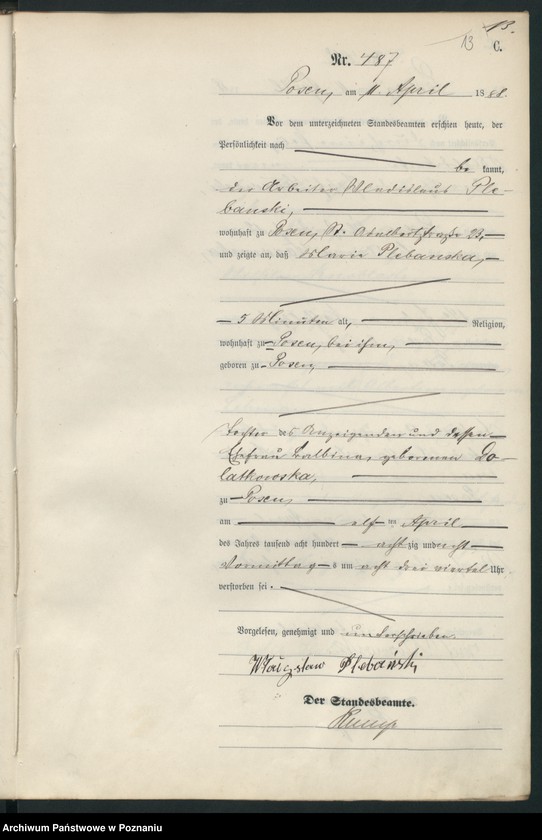 13.
13 C.
Nr. 487
Posen, am 11. April 1888.
Vor dem unterzeichneten Standesbeamten erschien heute, der
Persönlichkeit nach
be kannt,
der Arbeiter Wladislaus Ple-
banski,
wohnhaft zu Posen, St. Adalbertstraße 23,
und zeigte an, daß Marie Plebanska,
5 Minuten alt, Religion,
wohnhaft zu Posen, bei ihm,
geboren zu Posen,
Tochter des Anzeigenden und dessen
Ehefrau Balbina, geborenen
latkowska,
zu Posen,
am elf ten April
des Jahres tausend acht hundert acht zig und acht
Vormittags um acht drei viertel Uhr
verstorben sei.
Vorgelesen, genehmigt und unterschrieben
Władysław Plebański
Der Standesbeamte.
Archiwum Państwowe w Poznaniu